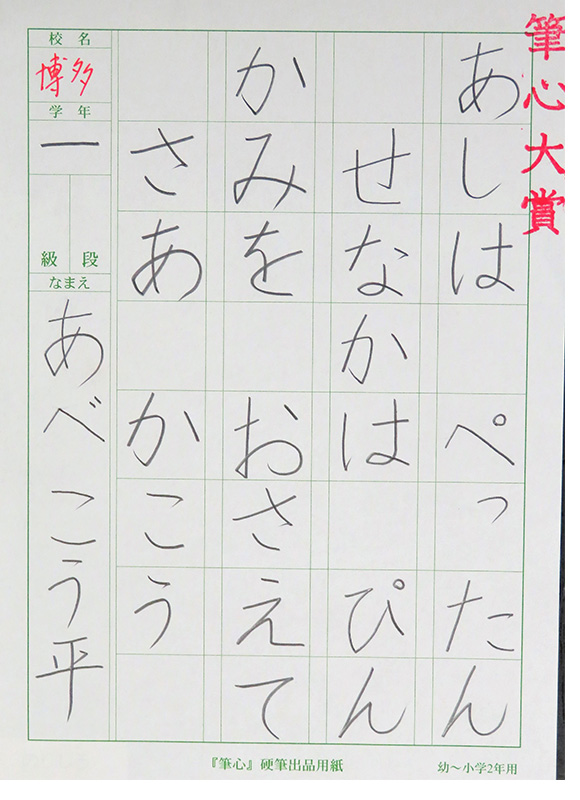 筆心大賞
あしは ぺったん
せなかは ぴん
かみを おさえて
さあ かこう
校名
博多
学年
一
級 段
なまえ
あべ こう平
『筆心』硬筆出品用紙
幼〜小学2年用